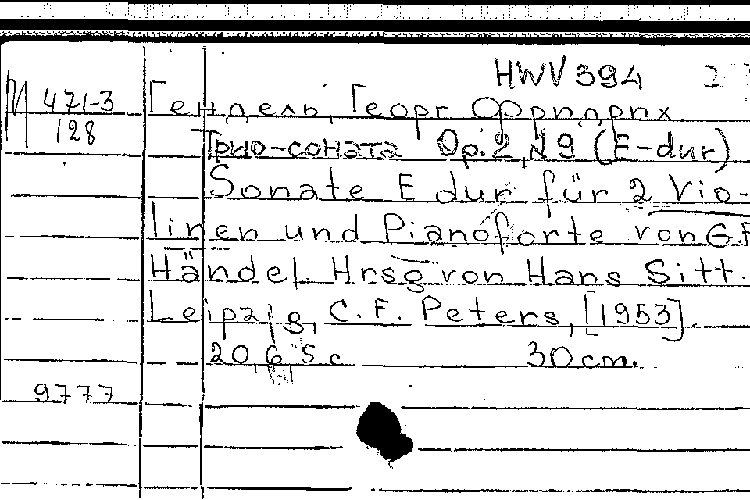 HWV 394
М 471-3
128
Гендель, Георг Фридрих
Трио-соната Op. 2, №9 (E-dur)
Sonate E dur für 2 Vio-
linen und Pianoforte von G.F.
Händel. Hrsg von Hans Sitt.
Leipzig, C. F. Peters, [1953].
20, 6 S c 30 cm.
9777